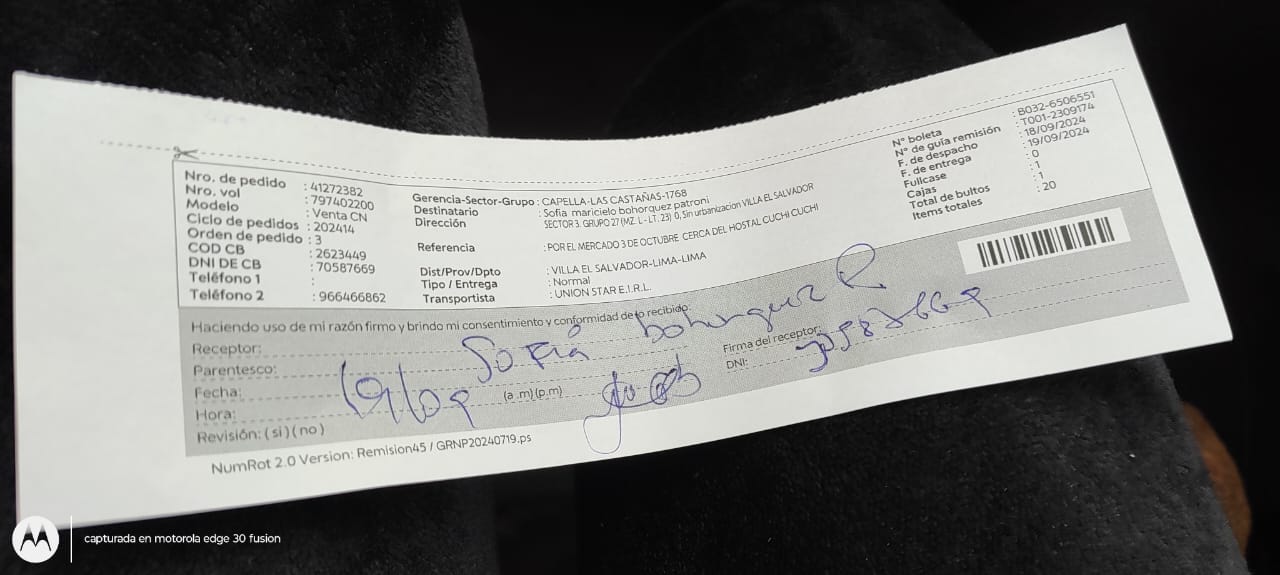 Nro. de pedido : 41272382
Nro. vol : 797402200
Modelo : Venta CN
Ciclo de pedidos : 202414
Orden de pedido : 3
COD CB : 2623449
DNI DE CB : 70587669
Teléfono 1 :
Teléfono 2 : 966466862
Gerencia-Sector-Grupo : CAPELLA-LAS CASTAÑAS-1768
Destinatario : Sofia maricielo bohorquez patroni
Dirección : SECTOR 3. GRUPO 27 (MZ. L - LT. 23) 0, Sin urbanizacion VILLA EL SALVADOR
Referencia : POR EL MERCADO 3 DE OCTUBRE CERCA DEL HOSTAL CUCHI CUCHI
Dist/Prov/Dpto : VILLA EL SALVADOR-LIMA-LIMA
Tipo / Entrega : Normal
Transportista : UNION STAR E.I.R.L.
N° boleta : B032-6506551
N° de guía remisión : T001-2309174
F. de despacho : 18/09/2024
F. de entrega : 19/09/2024
Fullcase : 0
Cajas : 1
Total de bultos : 1
Items totales : 20
Haciendo uso de mi razón firmo y brindo mi consentimiento y conformidad de lo recibido:
Receptor: Sofia bohorquez P
Parentesco:
Fecha: 19/09
Hora: (a.m)(p.m)
Revisión: ( si ) ( no )
Firma del receptor:
DNI: 70587669
NumRot 2.0 Version: Remision45 / GRNP20240719.ps
capturada en motorola edge 30 fusion